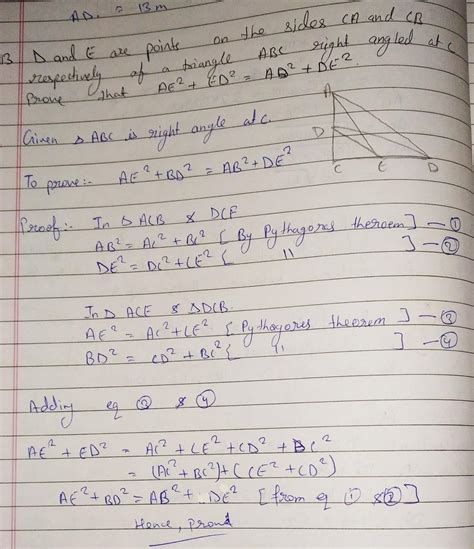 AD. = 13 m
13 D and E are points on the sides CA and CB
respectively of a triangle ABC right angled at C
Prove that AE² + ED² = AB² + DE².
Given △ ABC is right angle at C.
To prove:- AE² + BD² = AB² + DE²
A
D
C E D
Proof:- In △ ACB & DCE
AB² = AC² + BC² [ By Pythagores theroem ] — ①
DE² = DC² + CE² [ 〃 ] — ②
In △ ACE & △DCB.
AE² = AC² + CE² [ Pythagores theorem ] — ③
BD² = CD² + BC² [ 〃 ] — ④
Adding eq ③ & ④
AE² + ED² = AC² + CE² + CD² + BC²
= (AC² + BC²) + (CE² + CD²)
AE² + BD² = AB² + DE² [ from eq ① & ② ]
Hence, Proved